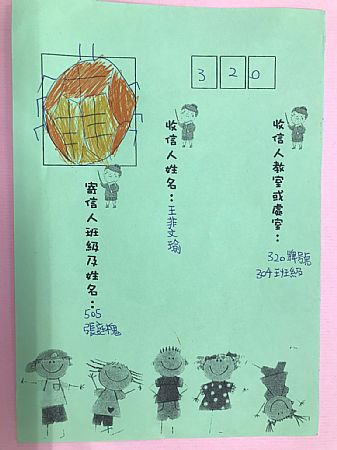 320
收信人教室或處室：
320 牌號
304 班級
收信人姓名：王菲文瑜
寄信人班級及姓名：
505
張庭槐